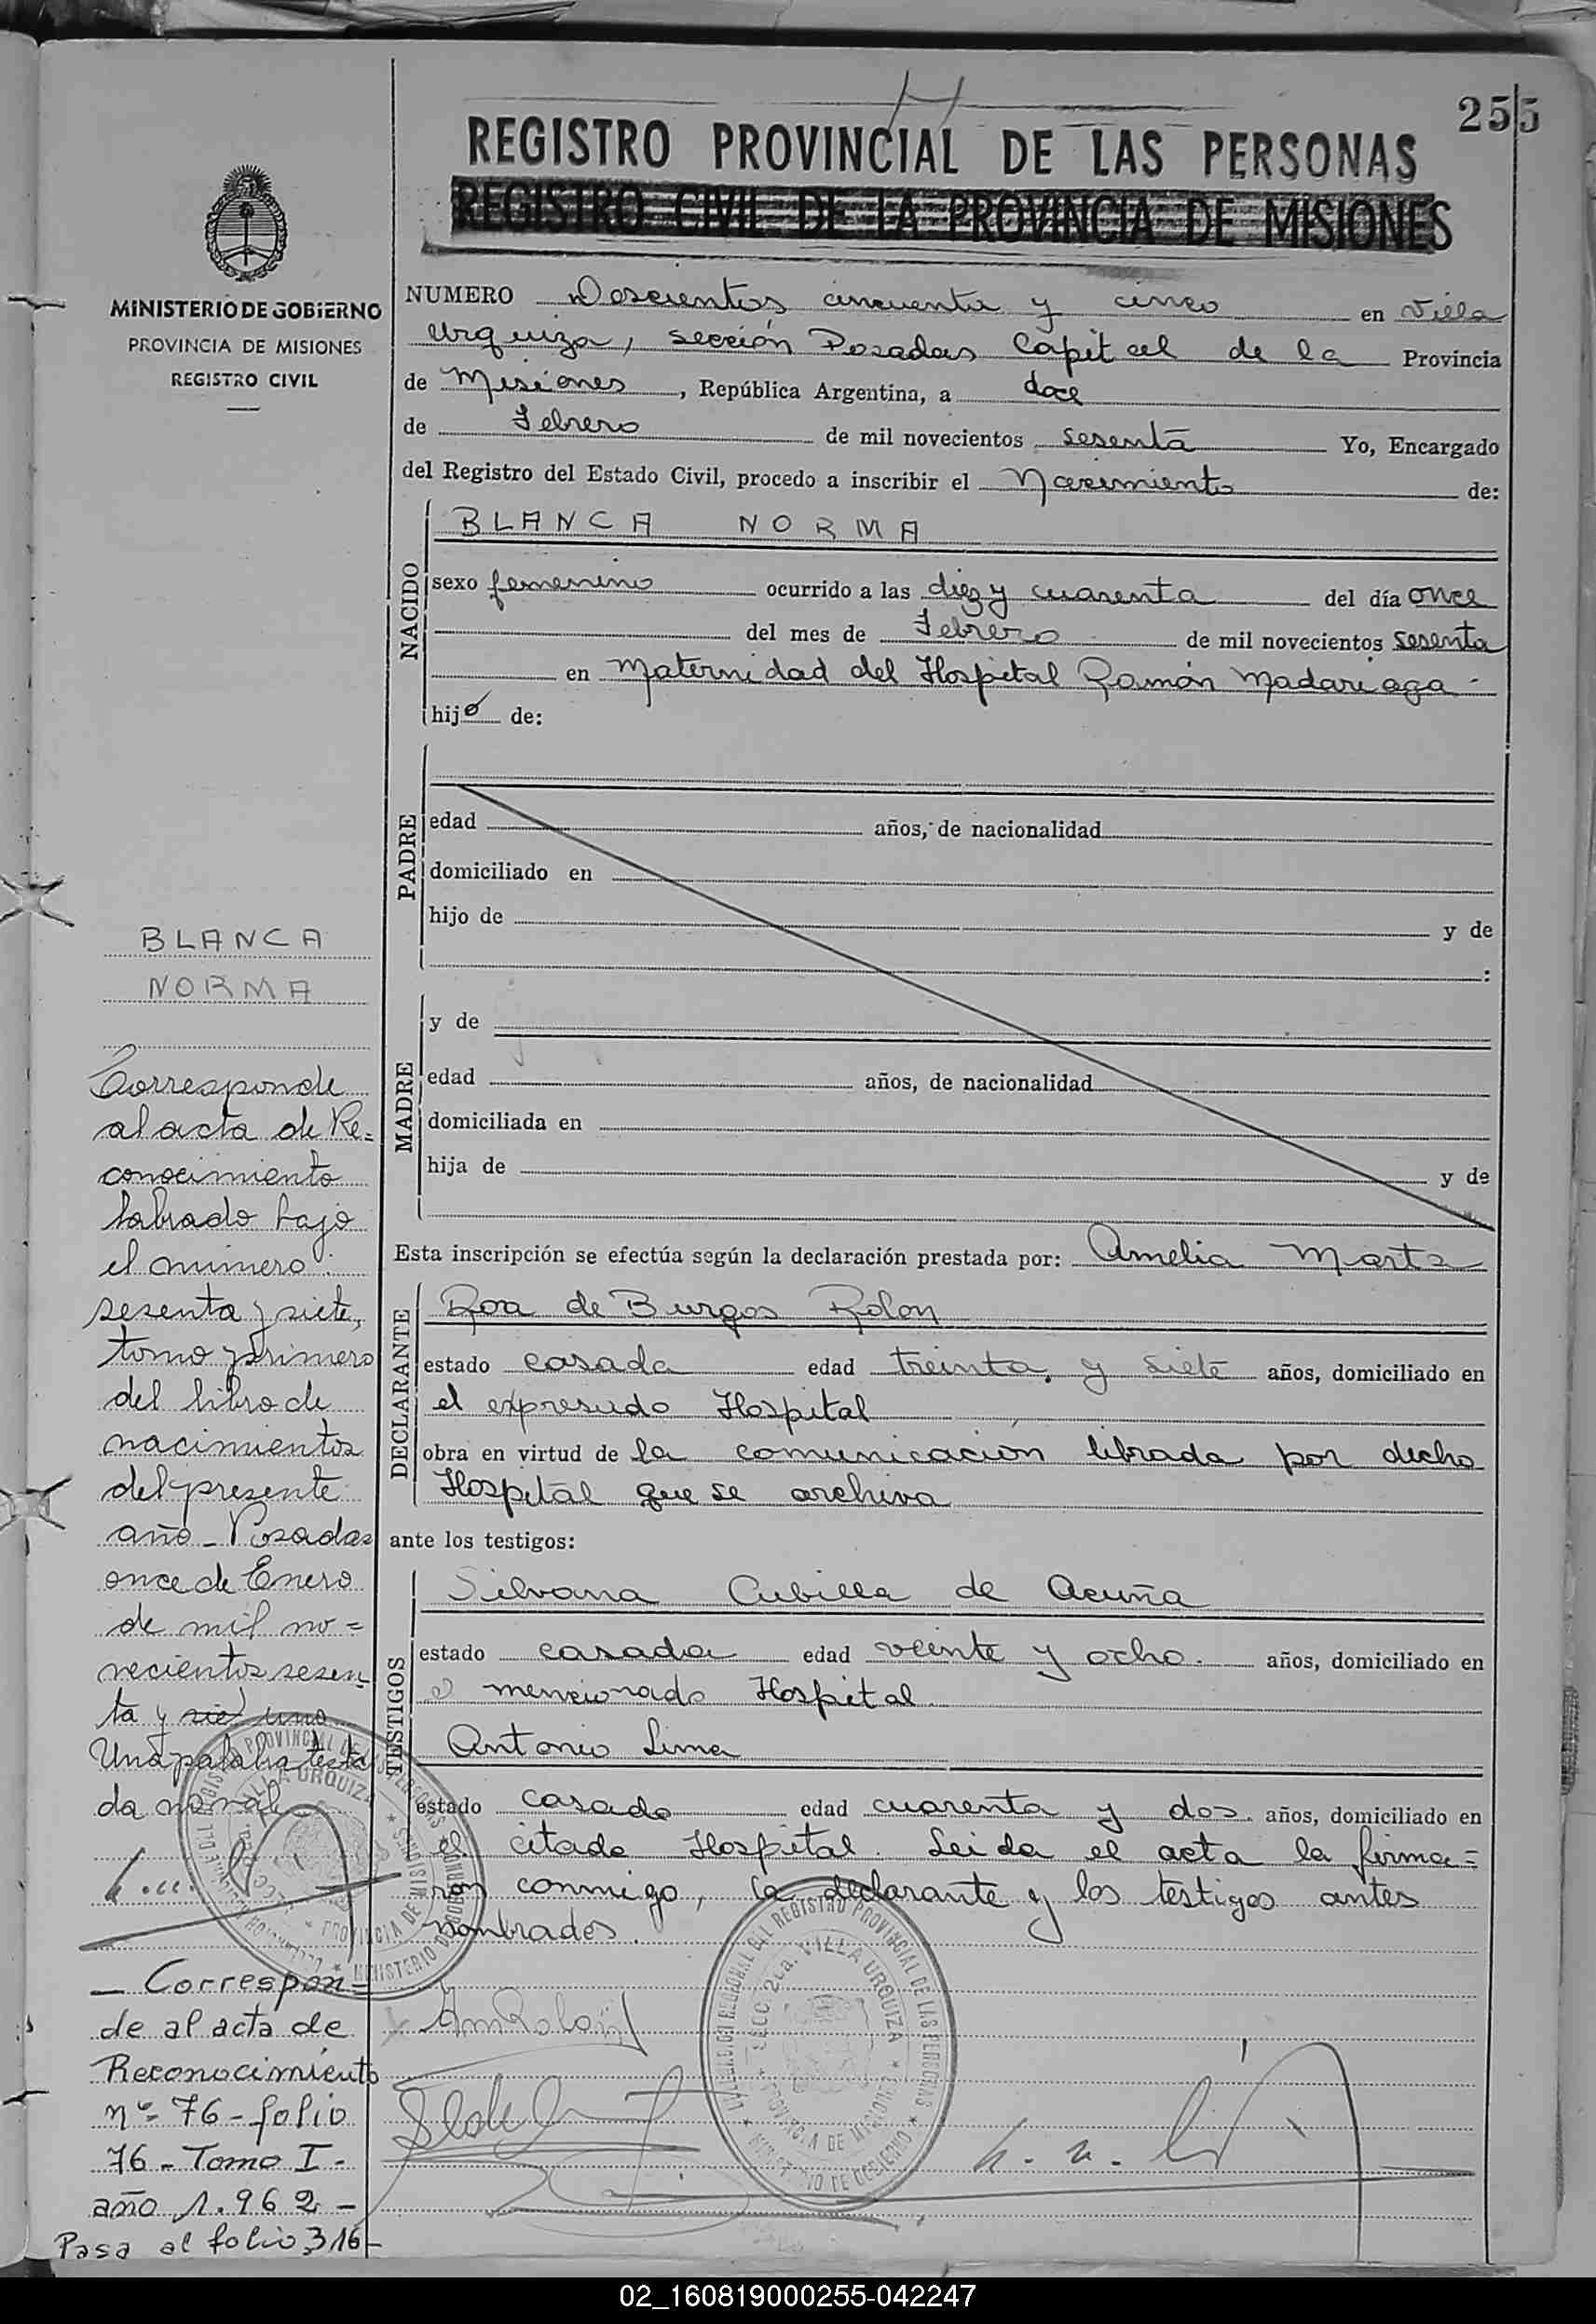 255
REGISTRO PROVINCIAL DE LAS PERSONAS
REGISTRO CIVIL DE LA PROVINCIA DE MISIONES
MINISTERIO DE GOBIERNO
PROVINCIA DE MISIONES
REGISTRO CIVIL
NUMERO Doscientos cincuenta y cinco en Villa
Urquiza, sección Posadas Capital de la Provincia
de Misiones, República Argentina, a doce
de Febrero de mil novecientos sesenta Yo, Encargado
del Registro del Estado Civil, procedo a inscribir el Nacimiento de:
NACIDO
BLANCA NORMA
sexo femenino ocurrido a las diez y cuarenta del día once
del mes de Febrero de mil novecientos sesenta
en Maternidad del Hospital Ramón Madariaga
hij de:
PADRE
edad años, de nacionalidad
domiciliado en
hijo de y de
:
MADRE
y de
edad años, de nacionalidad
domiciliada en
hija de y de
Esta inscripción se efectúa según la declaración prestada por: Amelia Marta
DECLARANTE
Roa de Burgos Rolon
estado casada edad treinta y siete años, domiciliado en
el expresado Hospital
obra en virtud de la comunicación librada por dicho
Hospital que se archiva
ante los testigos:
TESTIGOS
Silvana Cubilla de Acuña
estado casada edad veinte y ocho años, domiciliado en
mencionado Hospital
Antonio Lima
estado casado edad cuarenta y dos años, domiciliado en
el citado Hospital. Leida el acta la firma=
ron conmigo, la declarante y los testigos antes
nombrados.
BLANCA
NORMA
Corresponde
al acta de Re=
conocimiento
labrado bajo
el número
sesenta y siete,
tomo primero
del libro de
nacimientos
del presente
año - Posadas
once de Enero
de mil no=
vecientos sesen=
ta y sie uno
Una palabra testa
da no vale
- Correspon=
de al acta de
Reconocimiento
nº 76 - folio
76 - Tomo I -
año 1.962 -
Pasa al folio 316-
DELEGACION REGIONAL DEL REGISTRO PROVINCIAL DE LAS PERSONAS
SECC. 2da. VILLA URQUIZA
PROVINCIA DE MISIONES
MINISTERIO DE GOBIERNO
02_160819000255-042247